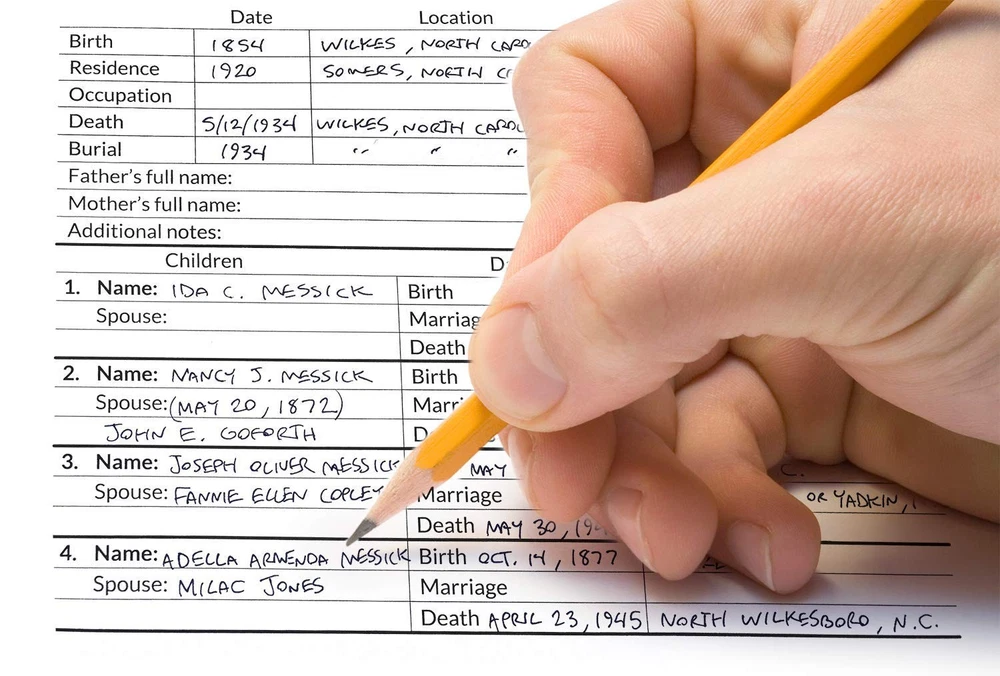 Date Location
Birth 1854 WILKES, NORTH
Residence 1920 SOMERS, NORTH
Occupation
Death 5/12/1934 WILKES, NORTH
Burial 1934 " " "
Father's full name:
Mother's full name:
Additional notes:
Children
1. Name: IDA C. MESSICK Birth
Spouse:
Death
2. Name: NANCY J. MESSICK Birth
Spouse: (MAY 20, 1872)
JOHN E. GOFORTH
3. Name: JOSEPH OLIVER MESSICK MAY C.
Spouse: FANNIE ELLEN COPLEY Marriage OR YADKIN,
Death MAY 30,
4. Name: ADELLA ARMENDA MESSICK Birth OCT. 14, 1877
Spouse: MILAC JONES Marriage
Death APRIL 23, 1945 NORTH WILKESBORO, N.C.